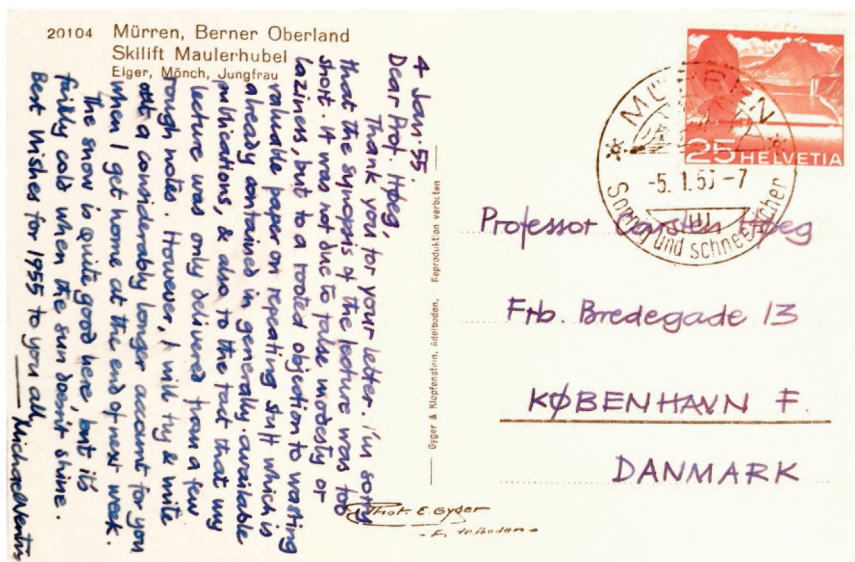 20104 Mürren, Berner Oberland
Skilift Maulerhubel
Eiger, Mönch, Jungfrau
4 Jan. 55.
Dear Prof. Høeg,
Thank you for your letter. I'm sorry
that the synopsis of the lecture was too
short. It was not due to false modesty or
laziness, but to a rooted objection to wasting
valuable paper on repeating stuff which is
already contained in generally available
publications, & also to the fact that my
lecture was only delivered from a few
rough notes. However, I will try & write
out a considerably longer account for you
when I get home at the end of next week.
The snow is quite good here, but it's
fairly cold when the sun doesn't shine.
Best wishes for 1955 to you all,
Michael Ventris
Gyger & Klopfenstein, Adelboden, Reproduktion verboten
Phot. E. Gyger
Adelboden
25 HELVETIA
MÜRREN
-5.1.55-7
Sonnig und schneesicher
Professor Carsten Høeg
Frb. Bredegade 13
KØBENHAVN F.
DANMARK